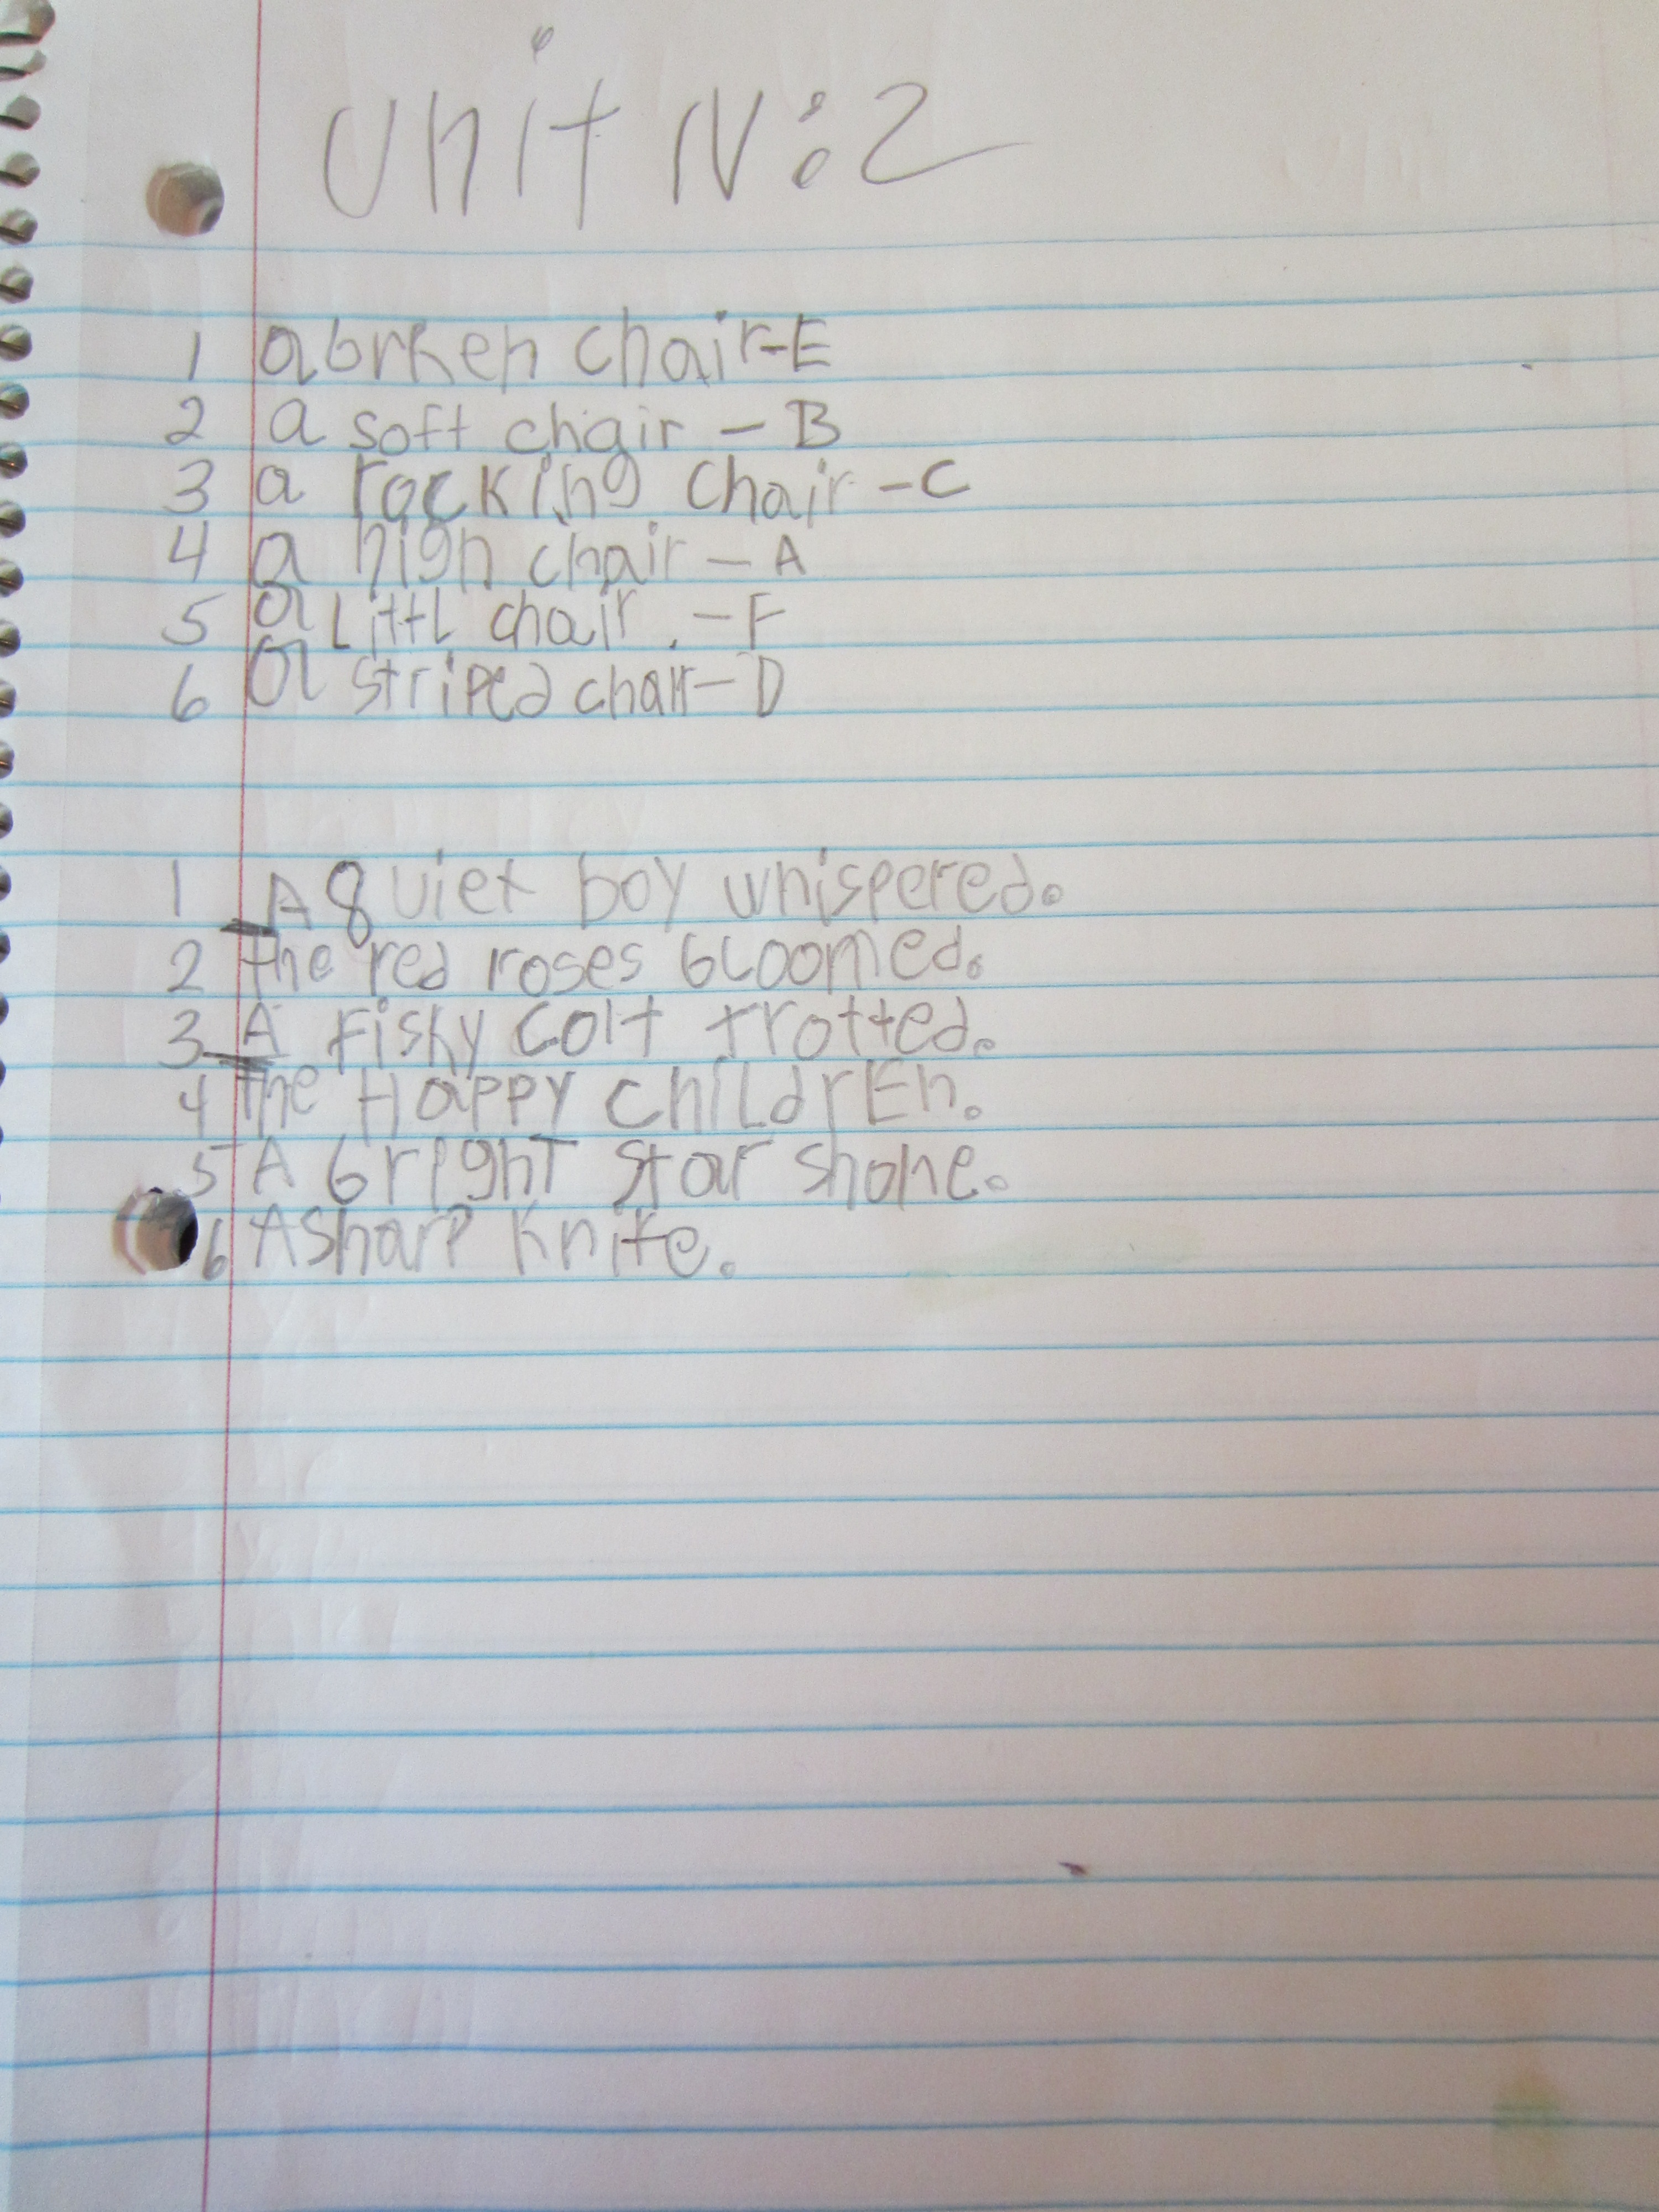 Unit N:2
1 a brken chair-E
2 a soft chair - B
3 a rocking chair - C
4 a high chair - A
5 a Littl chair. - F
6 a striped chair - D
1 A quiet boy whispered.
2 the red roses bloomed.
3 A Fisky colt trotted.
4 The Happy ChildrEn.
5 A bright star shone.
6 A Sharp knife.